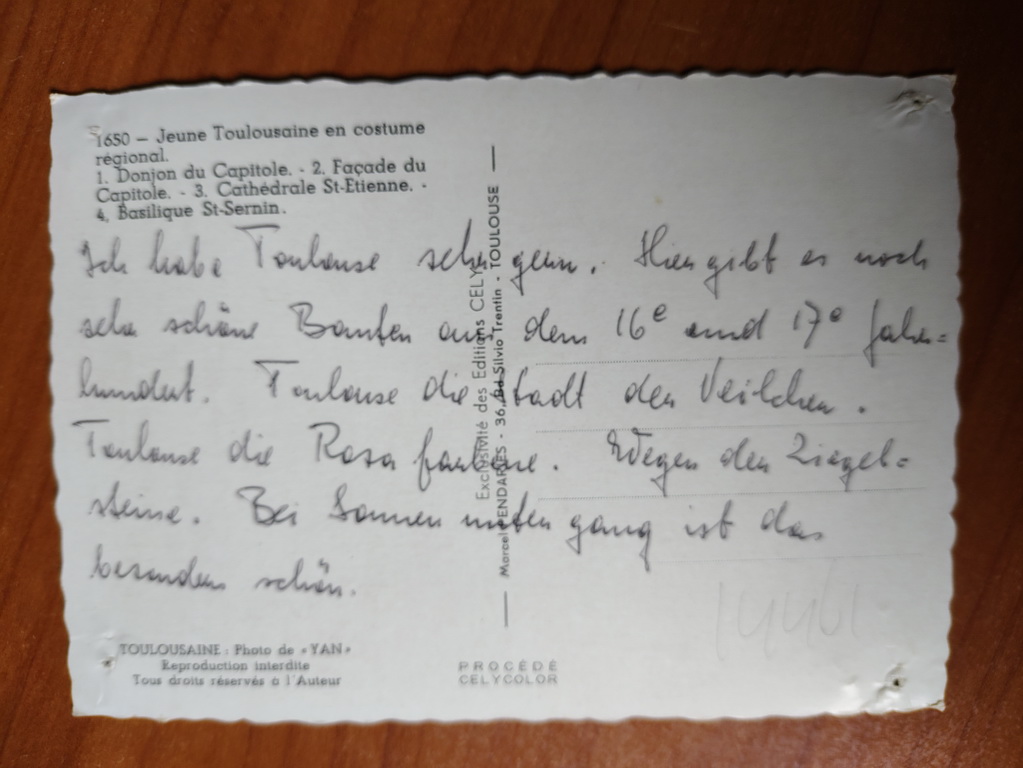 1650 – Jeune Toulousaine en costume
régional.
1. Donjon du Capitole. - 2. Façade du
Capitole. - 3. Cathédrale St-Etienne. -
4. Basilique St-Sernin.
Ich habe Toulouse sehr gern. Hier gibt es noch
sehr schöne Bauten aus dem 16e und 17e Jahr=
hundert. Toulouse die Stadt der Veilchen.
Toulouse die Rosa farbene. Wegen der Ziegel=
steine. Bei Sonnen unter gang ist das
besonders schön.
Exclusivité des Editions CELY
Marcel PENDARIES - 36, Bd Silvio Trentin - TOULOUSE
TOULOUSAINE : Photo de « YAN »
Reproduction interdite
Tous droits réservés à l'Auteur
PROCÉDÉ
CELYCOLOR